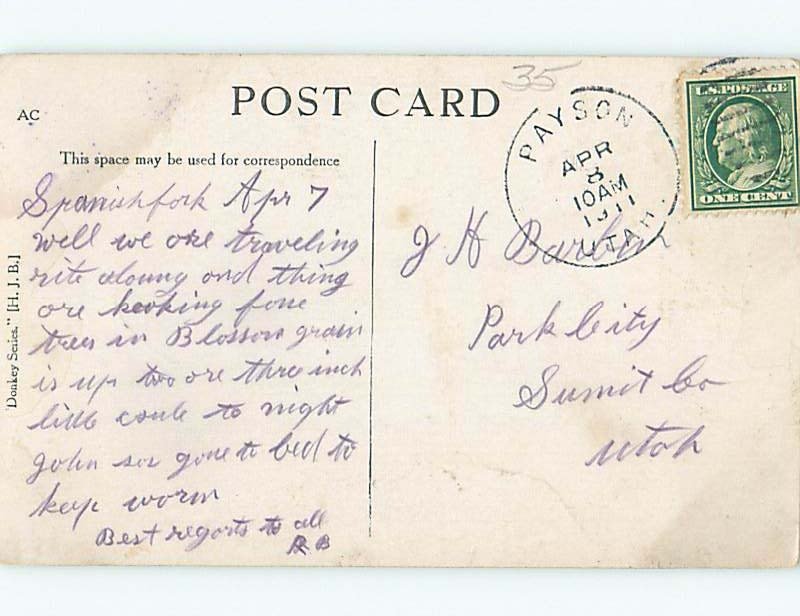 35
POST CARD
AC
This space may be used for correspondence
U.S. POSTAGE
ONE CENT
PAYSON
APR
8
10AM
1911
UTAH.
Spanishfork Apr 7
well we are traveling
rite aloung and thing
are looking fone
trees in Blossom grain
is up two ore three inch
little coule to night
John ses gone to bed to
keep worm
Best regorts to all
R B
J H Barbur
Park City
Sumit Co
Utah
Donkey Series." [H. J. B.]